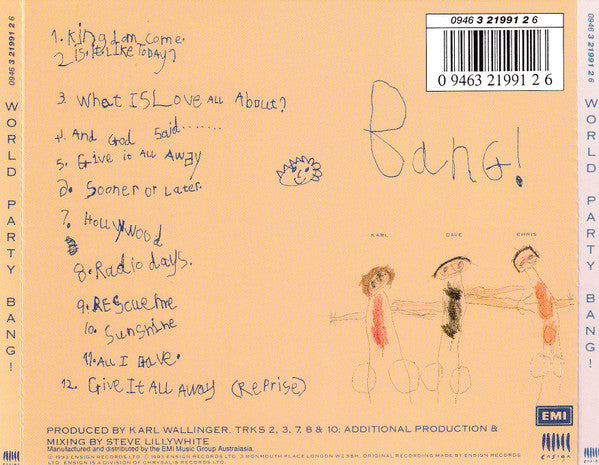 0946 3 21991 2 6
WORLD PARTY BANG!
1. Kingdom come.
2 iS it LiKE TODAY?
3. What ISLove All About?
4. And God Said.......
5. Give it All AwAy
6. Sooner or Later.
7. HollyWood
8. Radio days.
9. REScue me
10. Sunshine
11. All I Gave.
12. Give It All Away (Reprise)
0946 3 21991 2 6
0 09463 21991 2 6
Bang!
KARL DAVE CHRIS
PRODUCED BY KARL WALLINGER. TRKS 2, 3, 7, 8 & 10: ADDITIONAL PRODUCTION &
MIXING BY STEVE LILLYWHITE
Manufactured and distributed by the EMI Music Group Australasia.
℗ 1993 ENSIGN RECORDS LTD © 1993 ENSIGN RECORDS LTD. 3 MONMOUTH PLACE LONDON W2 5SH. ORIGINAL RECORDING MADE BY ENSIGN RECORDS
LTD. ENSIGN IS A DIVISION OF CHRYSALIS RECORDS LTD
EMI
ensign
0946 3 21991 2 6
WORLD PARTY BANG!
ensign